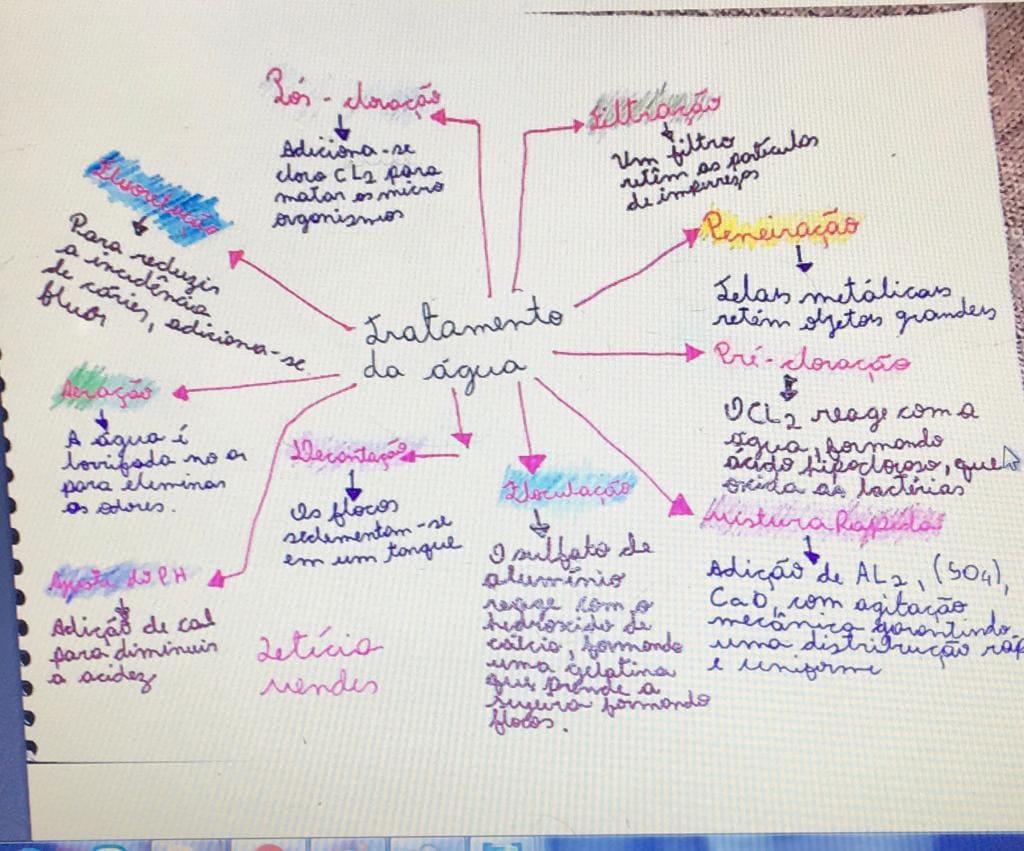 Pós - cloração
Adiciona-se
cloro CL2 para
matar os micro
organismos
Filtração
Um filtro
retêm as partículas
de impurezas
Fluoretação
Para reduzir
a incidência
de cáries, adiciona-se
fluor
Peneiração
Telas metálicas
retém objetos grandes
Tratamento
da água
Pré-cloração
O CL2 reage com a
água, formando
ácido hipocloroso, que
oxida as bactérias
Aeração
A água é
borrifada no ar
para eleminar
os odores.
Decantação
Os flocos
sedementam-se
em um tanque
Floculação
O sulfato de
alumínio
reage com o
hedroxido de
cálcio, formando
uma gelatina
que prende a
sujeira formando
flocos.
Mistura Rapida
Adição de AL2, (SO4),
CaO, com agitação
mecânica garantindo
uma distribuição ráp
e uniforme
Ajuste do PH
Adição de cal
para diminuir
a acidez
Letícia
mendes